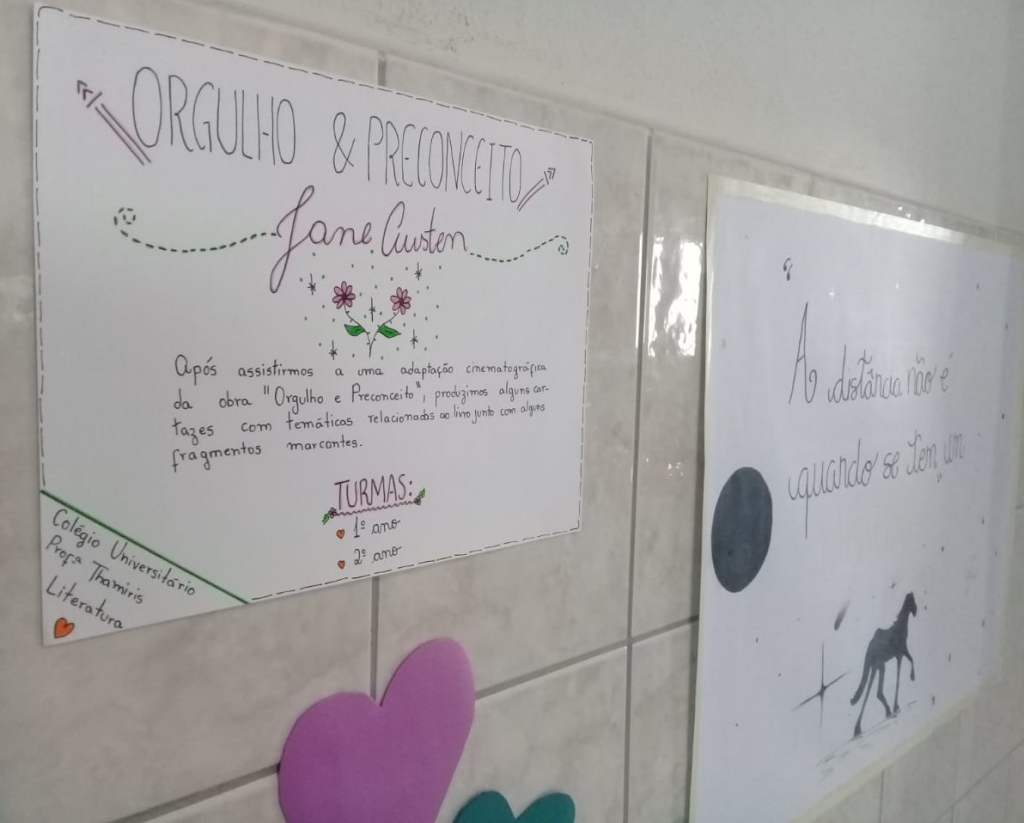 ORGULHO & PRECONCEITO
Jane Austen
Após assistirmos a uma adaptação cinematográfica
da obra "Orgulho e Preconceito", produzimos alguns car-
tazes com temáticas relacionadas ao livro junto com alguns
fragmentos marcantes.
TURMAS:
1º ano
2º ano
Colégio Universitário
Profª Thamiris
Literatura
"A distância não é
quando se tem um